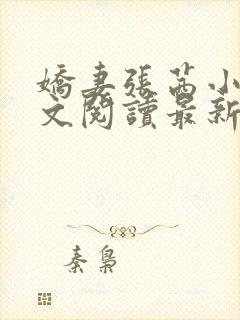 嬌妻張茜小
文閱讀最新
秦梟